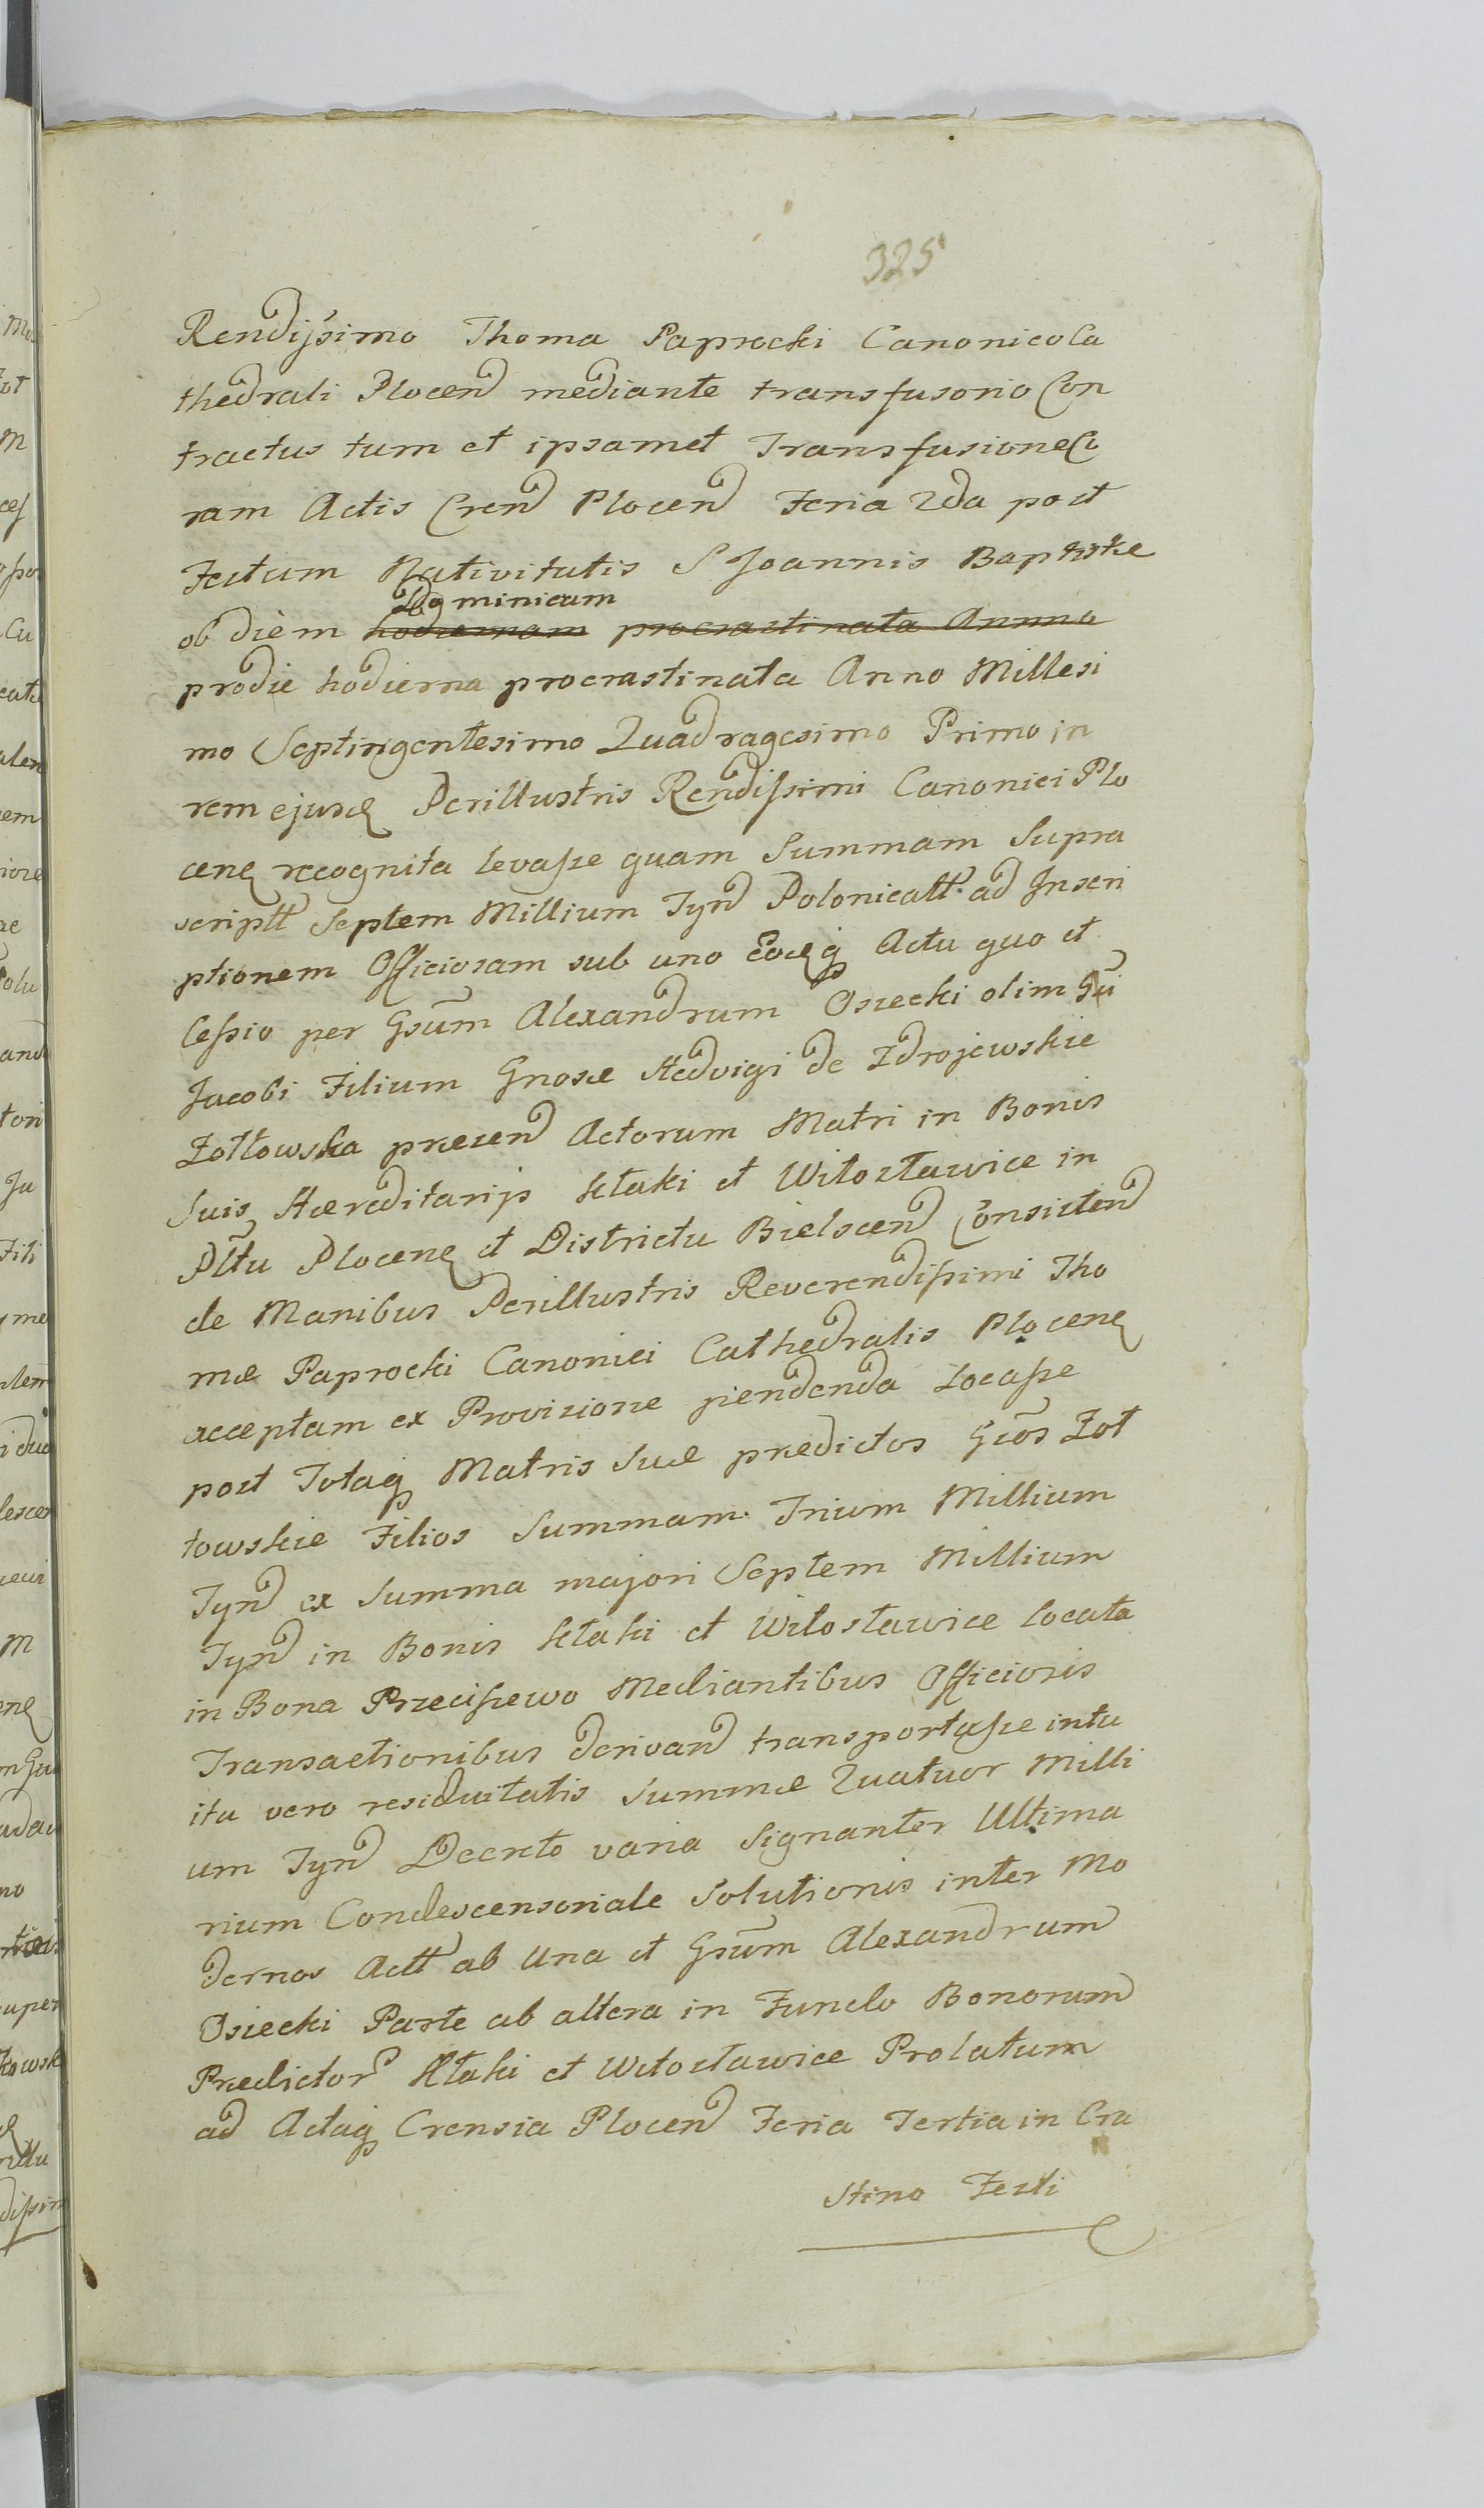 325
Rendissimo Thoma Paprocki Canonico Ca
thedrali Plocen mediante transfusorio Con
tractus tum et ipsamet Transfusione Co
ram Actis Cren Plocen Feria 2da post
Festum Nativitatis S Joannis Baptistæ
Dominicum
ob diem hodiernam procrastinata Annno
prodie hodierna procrastinata Anno Millesi
mo Septingentesimo Quadragesimo Primo in
rem ejusd Perillustris Rendissimi Canonici Plo
cen recognita levasse quam Summam Supra
scriptt Septem Millium Tyn Polonicatt. ad Inscri
ptionem Officiosam sub uno eodeq Actu quo et
Cessio per Gsum Alexandrum Osiecki olim Gsi
Jacobi Filium Gnosæ Hedvigi de Zdrojewskie
Żołtowska præsen Actorum Matri in Bonis
Suis Hæreditarijs Kłaki et Witosławice in
Pltu Plocen et Districtu Bielscen Consisten
de Manibus Perillustris Reverendissimi Tho
mæ Paprocki Canonici Cathedralis Plocen
acceptam ex Provisione pendenda Locasse
post Totaq Matris Suæ prædictos Gsos Żoł
towskie Filios Summam Trium Millium
Tyn ex Summa majori Septem Millium
Tyn in Bonis Kłaki et Witosławice locata
in Bona Przeciszewo Mediantibus Officiosis
Transactionibus derivan transportasse intu
itu vero residuitatis Summæ Quatuor Milli
um Tyn Decreto varia Signanter Ultima
rium Condescensoriale Solutionis inter Mo
dernos Actt ab Una et Gsum Alexandrum
Osiecki Parte ab altera in Fundo Bonorum
Prædictor Kłaki et Witosławice Prolatum
ad Actaq Crensia Plocen Feria Tertia in Cra
Stino Festi